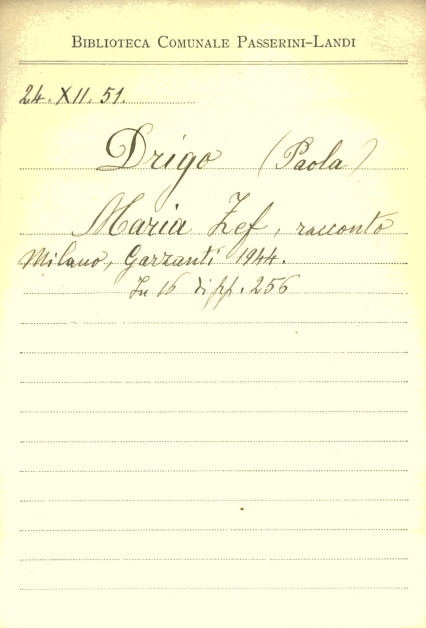 BIBLIOTECA COMUNALE PASSERINI-LANDI
24. XII. 51.
Drigo (Paola)
Maria Zef, racconto
Milano, Garzanti 1944.
In 16 di pp. 256